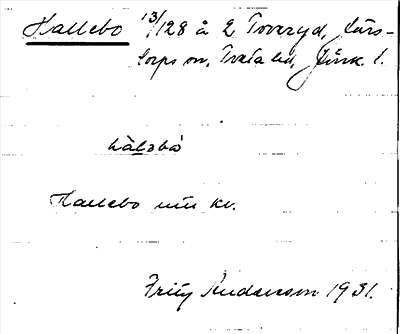 Hallebo 13/128 å L Toveryd, Lars-
torps sn, Tveta hd, Jönk. l.
hàlabò
Hallebo utn kv.
Fritz Andersson 1931.